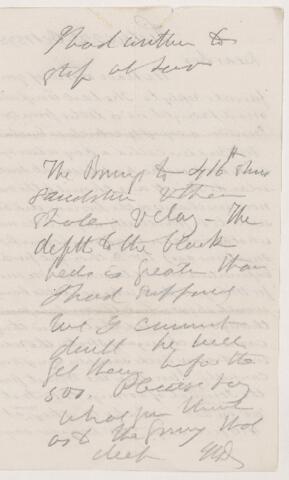 I had written to
stop at
The Boring to 416 ft
sandstone & then
shale & clay - The
depth to the black
beds is greater than
I had supposed
we
he will
get them before the
500. Please say
what you think
as to the going that
deep